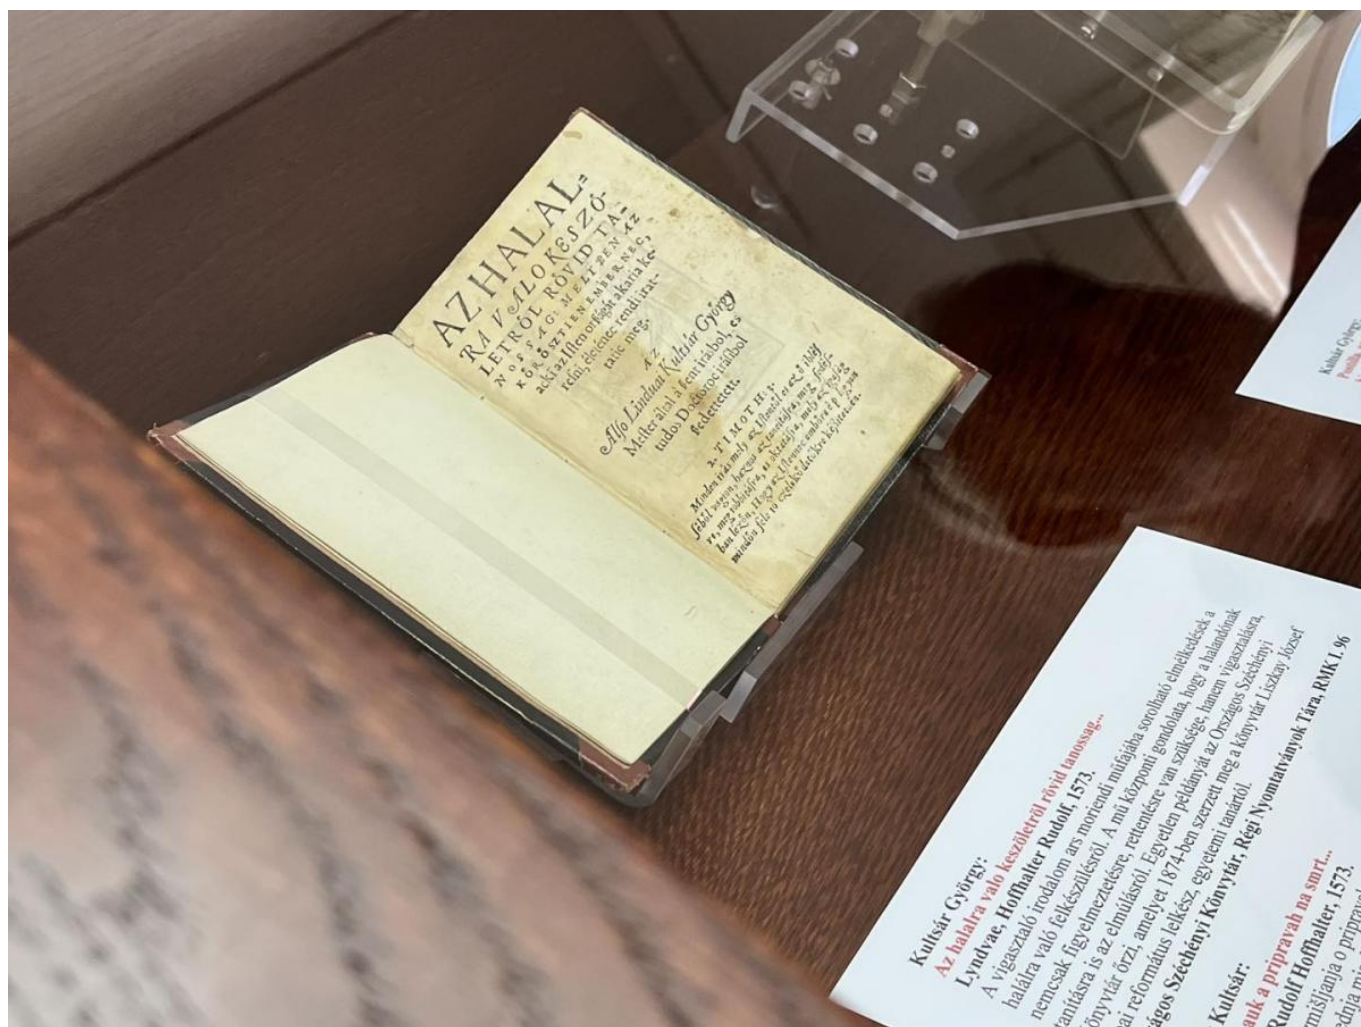 AZ HALAL=
RA VALO KESZÖ-
LETRÖL RÖVID TA=
NOSSAG: MELTBEN AZ
KÖRÖSZTIEN EMBERNEC,
acki az Istēn orſzágát akaria ke-
reſni, életēnec rendi irat-
tatic meg.
AZ
Alſo Linduai Kultſár György
Meſter által à ſent irásbol, es
tudos Doctoroc iráſibol
ſedettetett.
2. TIMOTH: 3.
Minden irás mely az Iſtentöl
mindön fele io czeleködetökre
Kultsár György:
Az halalra valo keszöletröl rövid tanossag...
Lyndvae, Hoffhalter Rudolf, 1573.
A vigasztaló irodalom ars moriendi műfajába sorolható elmélkedések a
halálra való felkészülésről. A mű központi gondolata, hogy a halandónak
nemcsak figyelmeztetésre, rettentésre van szüksége, hanem vigasztalásra,
tanításra is az elmúlásról. Egyetlen példányát az Országos Széchényi
önyvtár őrzi, amelyet 1874-ben szerzett meg a könyvtár Liszkay József
ai református lelkész, egyetemi tanártól.
ágos Széchényi Könyvtár, Régi Nyomtatványok Tára, RMK I. 96
Kultsár:
auk a pripravah na smrt...
Rudolf Hoffhalter, 1573.
mišljanja o pripravah
Kultsár György: